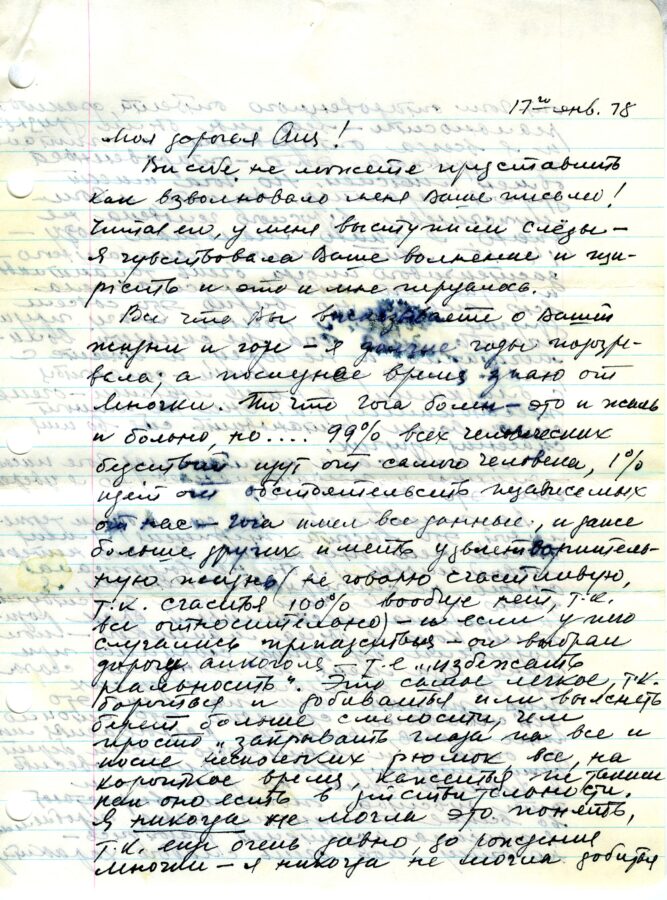 17го янв. 78
Моя дорогая Ащ!
Вы себе не можете представить
как взволновало меня Ваше письмо!
Читая его, у меня выступили слёзы –
я чувствовала Ваше волнение и ще-
рiсть и это и мне передалось.
Все что Вы высказываете о Вашей
жизни и горе – я долгие годы подозре-
вала, а последнее время знаю от
Миночки. То что Гога болен – это и жаль
и больно, но.... 99% всех человеческих
бедствий идут от самого человека, 1%
идет от обстоятельств независемых
от нас – Гога имел все данные, и даже
больше других иметь удовлетворитель-
ную жизнь (не говорю счастливую,
т.к. счастья 100% вообще нет, т.к.
все относительно) – и если у него
случались – он выбрал
дорогу алкоголя – т.е. „избежать
реальность". Это самое легкое, т.к.
бороться и добиваться или выяснять
берет больше смелости, чем
просто „закрывать глаза на все и
после нескольких рюмок все, на
короткое время, кажется не таким
как оно есть в действительности.
Я никогда не могла это понять,
т.к. еще очень давно, до рождения
Миночки – я никогда не могла добиться